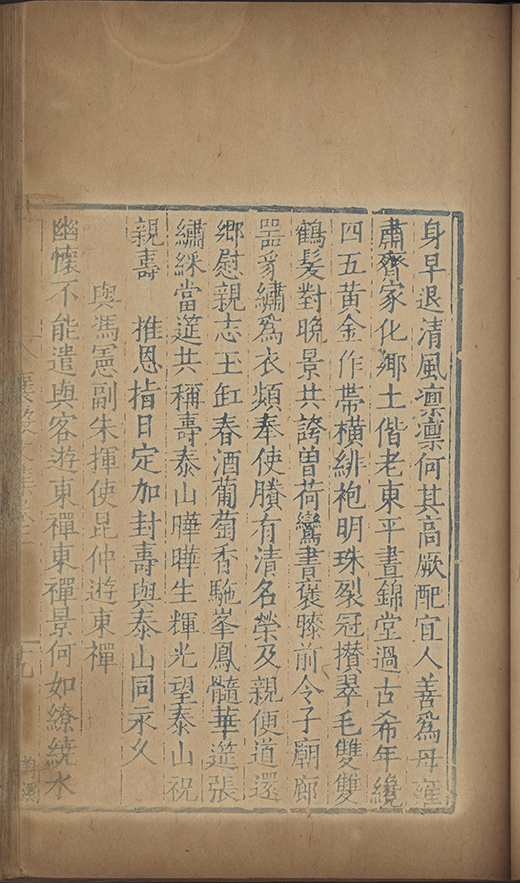 身早退清風凛凛何其高厥配宜人善爲母雍
肅齊家化鄉土偕老東平晝錦堂過古希年纔
四五黃金作帶橫緋袍明珠裂冠攅翠毛雙雙
鶴髮對晩景共誇曽荷鸞書襃膝前令子廟廊
器豸繡爲衣頻奉使賸有清名榮及親便道還
鄉慰親志玉缸春酒葡萄香駞峯鳳髓華筵張
繡綵當筵共稱壽泰山曄曄生輝光望泰山祝
親壽　推恩指日定加封壽與泰山同永久
與馮憲副朱揮使昆仲遊東禪
幽懷不能遣與客遊東禪東禪景何如繚繞水